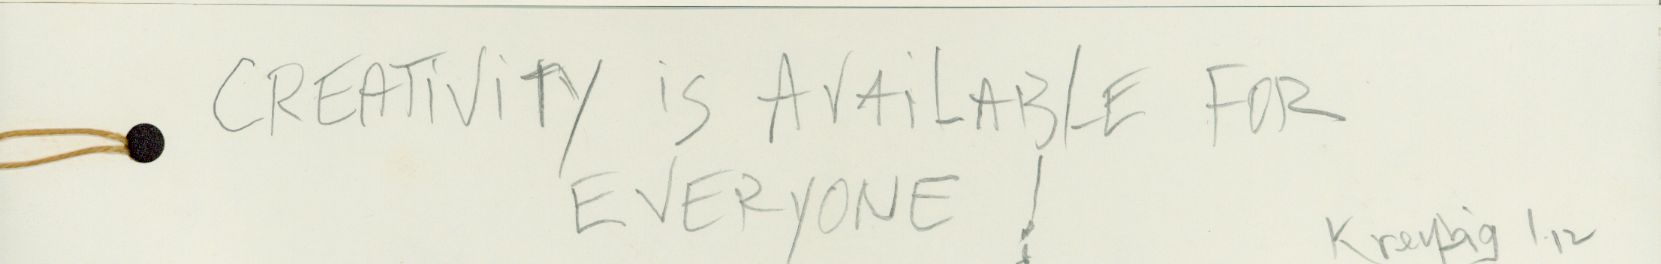 CREATiViTY iS AVAiLABLE FOR
EVERYONE !
Kreyßig 1.12